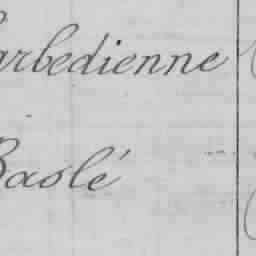 arbedienne
Baslé